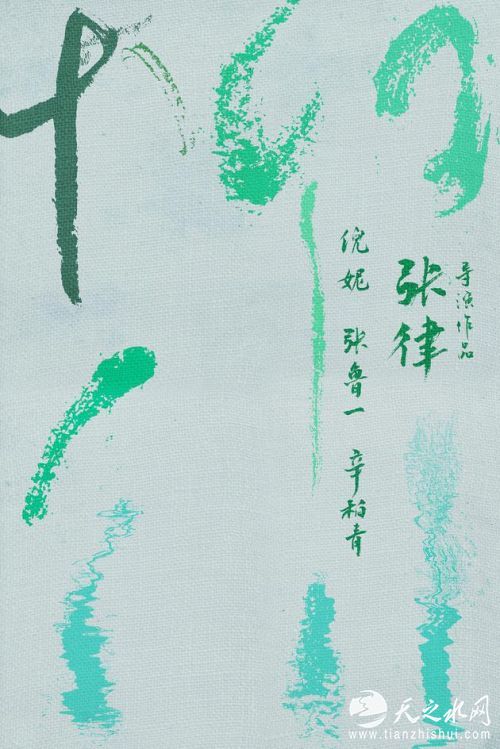 柳川
导演作品
张律
倪妮 张鲁一 辛柏青
天之水网
www.tianzhishui.com